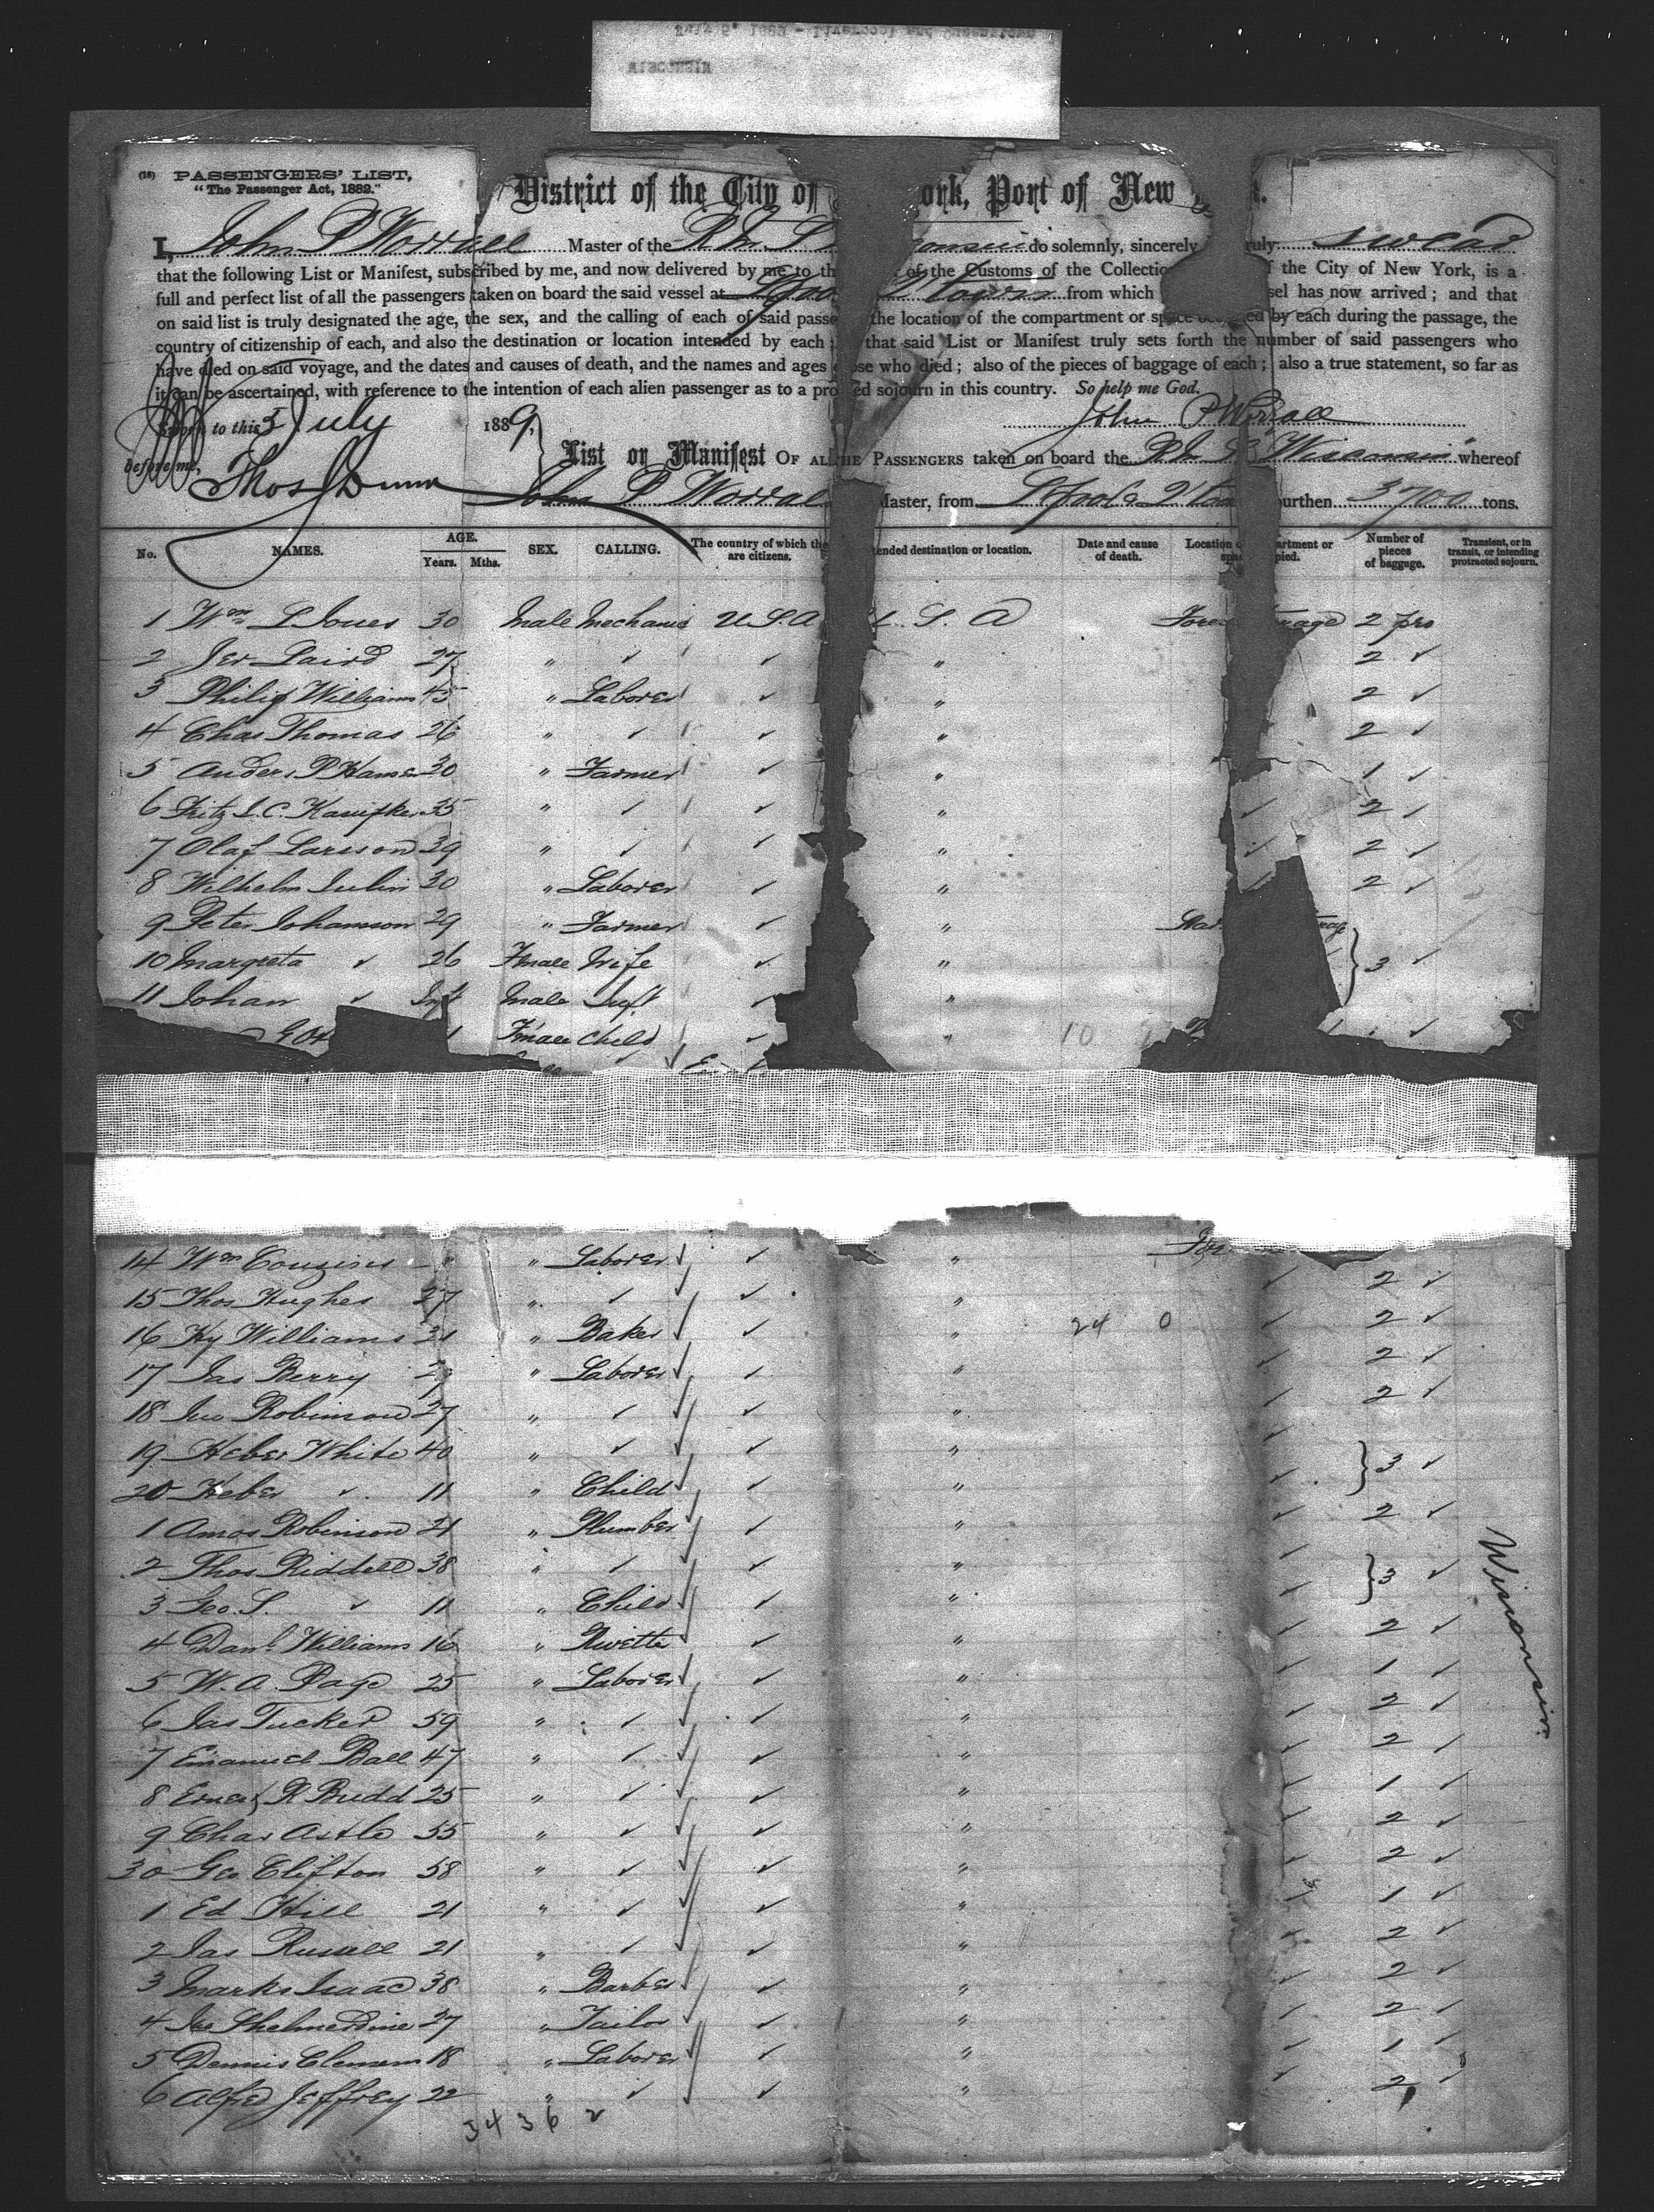 WISCONSIN
(18) PASSENGERS' LIST,
"The Passenger Act, 1882."
District of the City of ork, Port of New
I, John P Worrall Master of the R M S onsin do solemnly, sincerely ruly swear
that the following List or Manifest, subscribed by me, and now delivered by me to th of the Customs of the Collectio f the City of New York, is a
full and perfect list of all the passengers taken on board the said vessel at from which sel has now arrived; and that
on said list is truly designated the age, the sex, and the calling of each of said passe the location of the compartment or space ed by each during the passage, the
country of citizenship of each, and also the destination or location intended by each; that said List or Manifest truly sets forth the number of said passengers who
have died on said voyage, and the dates and causes of death, and the names and ages ose who died; also of the pieces of baggage of each; also a true statement, so far as
it can be ascertained, with reference to the intention of each alien passenger as to a pro ed sojourn in this country. So help me God.
Sworn to this 5 July 1889, John P Worrall
before me, Thos Dunn
List or Manifest OF ALL THE PASSENGERS taken on board the R M S "Wisconsin" whereof
John P Worral Master, from L'pool & Q'tow urthen 3700 tons.
No. NAMES. AGE. Years. Mths. SEX. CALLING. The country of which the are citizens. tended destination or location. Date and cause of death. Location artment or spa pied. Number of pieces of baggage. Transient, or in transit, or intending protracted sojourn.
1 Wm L Jones 30 Male Mechanic U.S.A U.S.A Fore rage 2 pcs
2 Jer Laird 27 " ✓ ✓ " 2 ✓
3 Philip Williams 45 " Laborer ✓ " 2 ✓
4 Chas Thomas 26 " ✓ ✓ " 2 ✓
5 Anders P Hansen 30 " Farmer ✓ " 1 ✓
6 Fritz L.C. 35 " ✓ ✓ " ✓ 2 ✓
7 Olaf Larsson 39 " ✓ ✓ " ✓ 2 ✓
8 Wilhelm Julin 30 " Laborer ✓ " 2 ✓
9 Peter Johansson 29 " Farmer ✓ "
10 Margreta ✓ 26 Fmale Wife ✓ " 3 ✓
11 Johan ✓ Inft Male Inft ✓ "
1 Fmale Child ✓ " 10 ✓
14 Wm Cousins " " Laborer ✓ " For 2 ✓
15 Thos Hughes 27 " ✓ ✓ " ✓ 2 ✓
16 Hy Williams 21 " Baker ✓ " 24 0 ✓ 2 ✓
17 Jas Berry " Laborer ✓ " ✓ 2 ✓
18 Jno Robinson 27 " ✓ ✓ " ✓ 2 ✓
19 Heber White 40 " ✓ ✓ " ✓
20 Heber ✓ 11 " Child ✓ " ✓ 3 ✓
1 Amos Robinson 21 " Plumber ✓ " ✓ 2 ✓
2 Thos Riddell 38 " ✓ ✓ " ✓
3 Geo. S. ✓ 11 " Child ✓ " ✓ 3 ✓
4 Danl Williams 16 " Rivetter ✓ " ✓ 2 ✓
5 W. A. Page 25 " Laborer ✓ " ✓ 1 ✓
6 Jas Tucker 59 " ✓ ✓ " ✓ 2 ✓
7 Emanuel Ball 47 " ✓ ✓ " ✓ 2 ✓
8 Ernest R Budd 25 " ✓ ✓ " ✓ 1 ✓
9 Chas Astle 55 " ✓ ✓ " ✓ 2 ✓
30 Geo Clifton 58 " ✓ ✓ " ✓ 2 ✓
1 Ed Hill 21 " ✓ ✓ " ✓ 1 ✓
2 Jas Russell 21 " ✓ ✓ " ✓ 2 ✓
3 Marks Isaac 38 " Barber ✓ " ✓ 2 ✓
4 Jas Shelmerdine 27 " Tailor ✓ " ✓ 2 ✓
5 Dennis Clemens 18 " Laborer ✓ " ✓ 1 ✓
6 Alfred Jeffrey 22 " ✓ ✓ " ✓ 2 ✓
34 36 2
Wisconsin